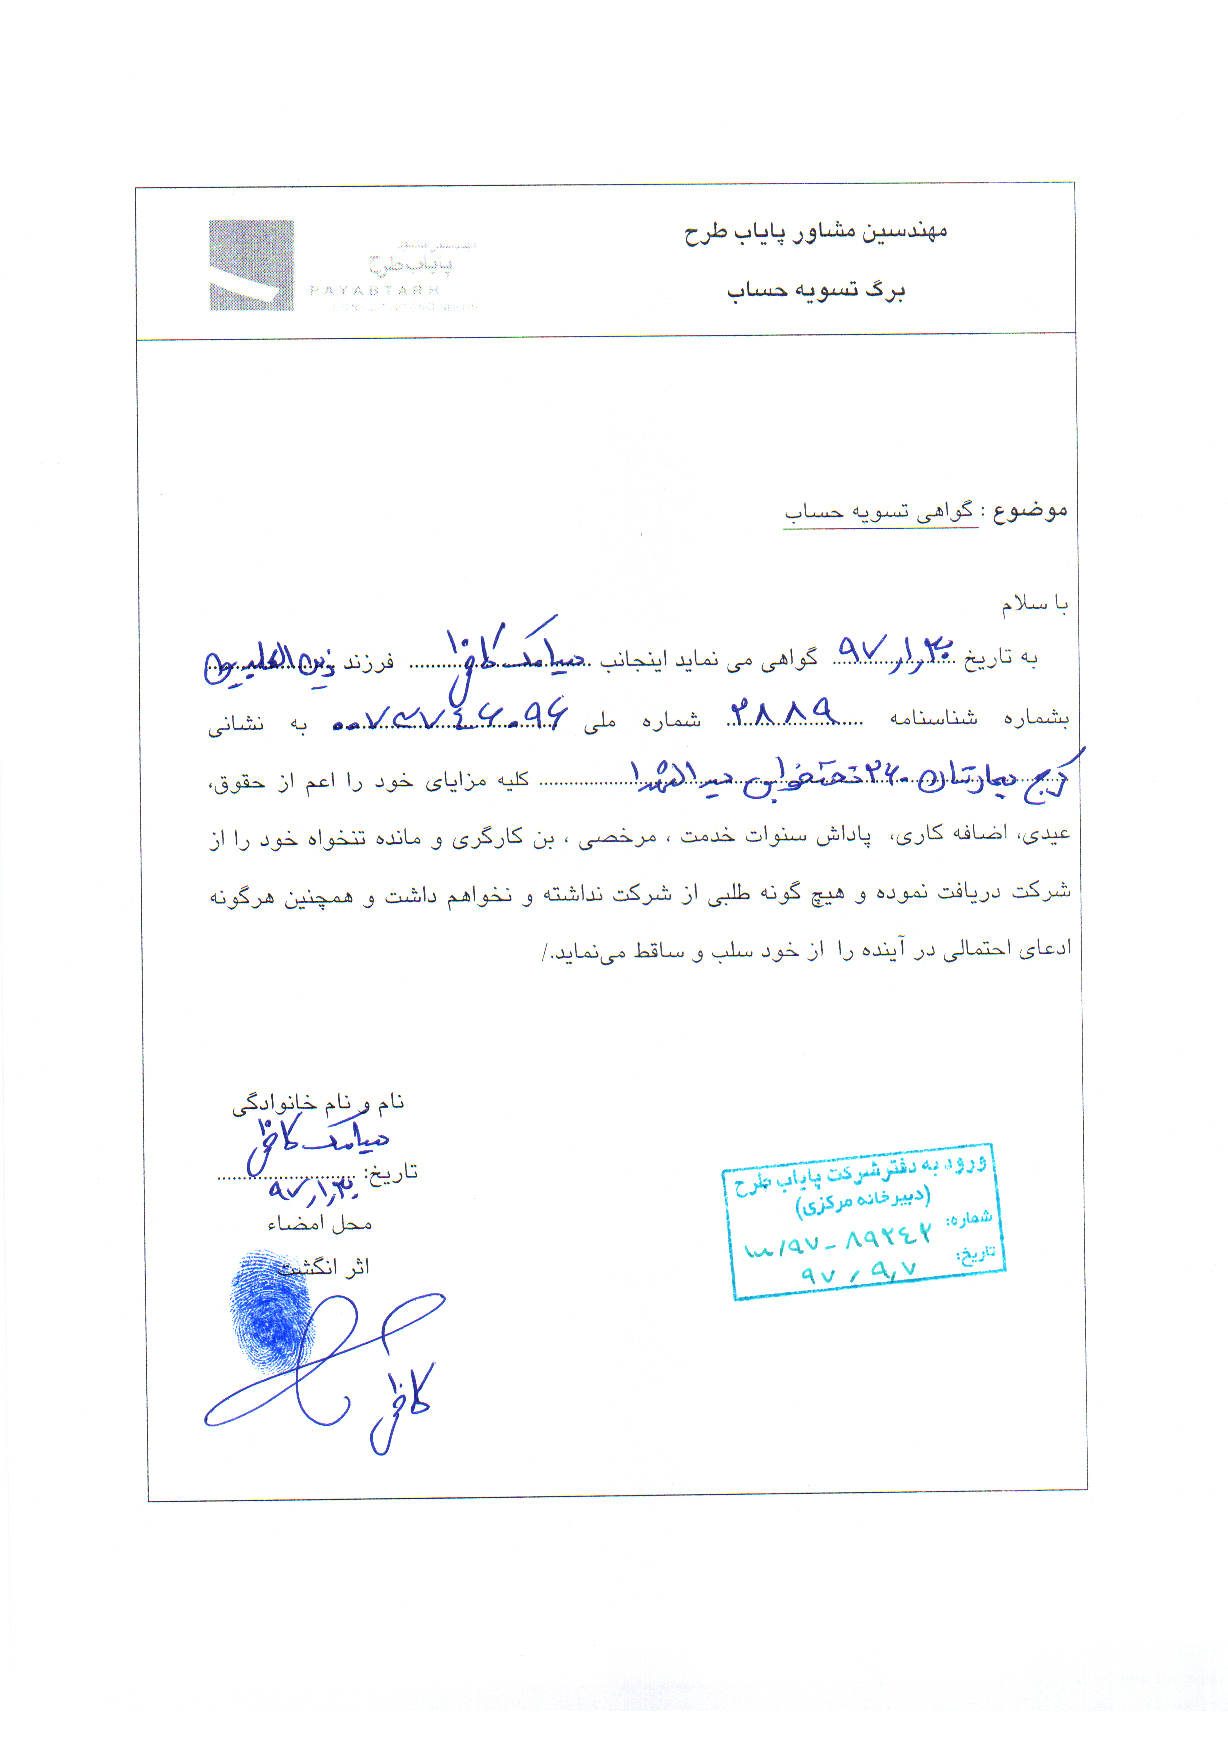 مهندسین مشاور پایاب طرح
برگ تسویه حساب
پایاب طرح
PAYABTARH
موضوع : گواهی تسویه حساب
با سلام
به تاریخ ۹۷،۱،۳۰ گواهی می نماید اینجانب سیامک کاظمی فرزند زین العابدین
بشماره شناسنامه ۲۸۸۹ شماره ملی به نشانی
کرج بیمارستان ۲۶۰ تختخوابی سید الشهدا کلیه مزایای خود را اعم از حقوق،
عیدی، اضافه کاری، پاداش سنوات خدمت ، مرخصی ، بن کارگری و مانده تنخواه خود را از
شرکت دریافت نموده و هیچ گونه طلبی از شرکت نداشته و نخواهم داشت و همچنین هرگونه
ادعای احتمالی در آینده را از خود سلب و ساقط می‌نماید./
نام و نام خانوادگی
سیامک کاظمی
تاریخ: ۹۷،۱،۳۰
محل امضاء
اثر انگشت
کاظمی
ورود به دفتر شرکت پایاب طرح
(دبیرخانه مرکزی)
شماره: ۸۹۲۴۲-۹۷/
تاریخ: ۹۷،۹،۷